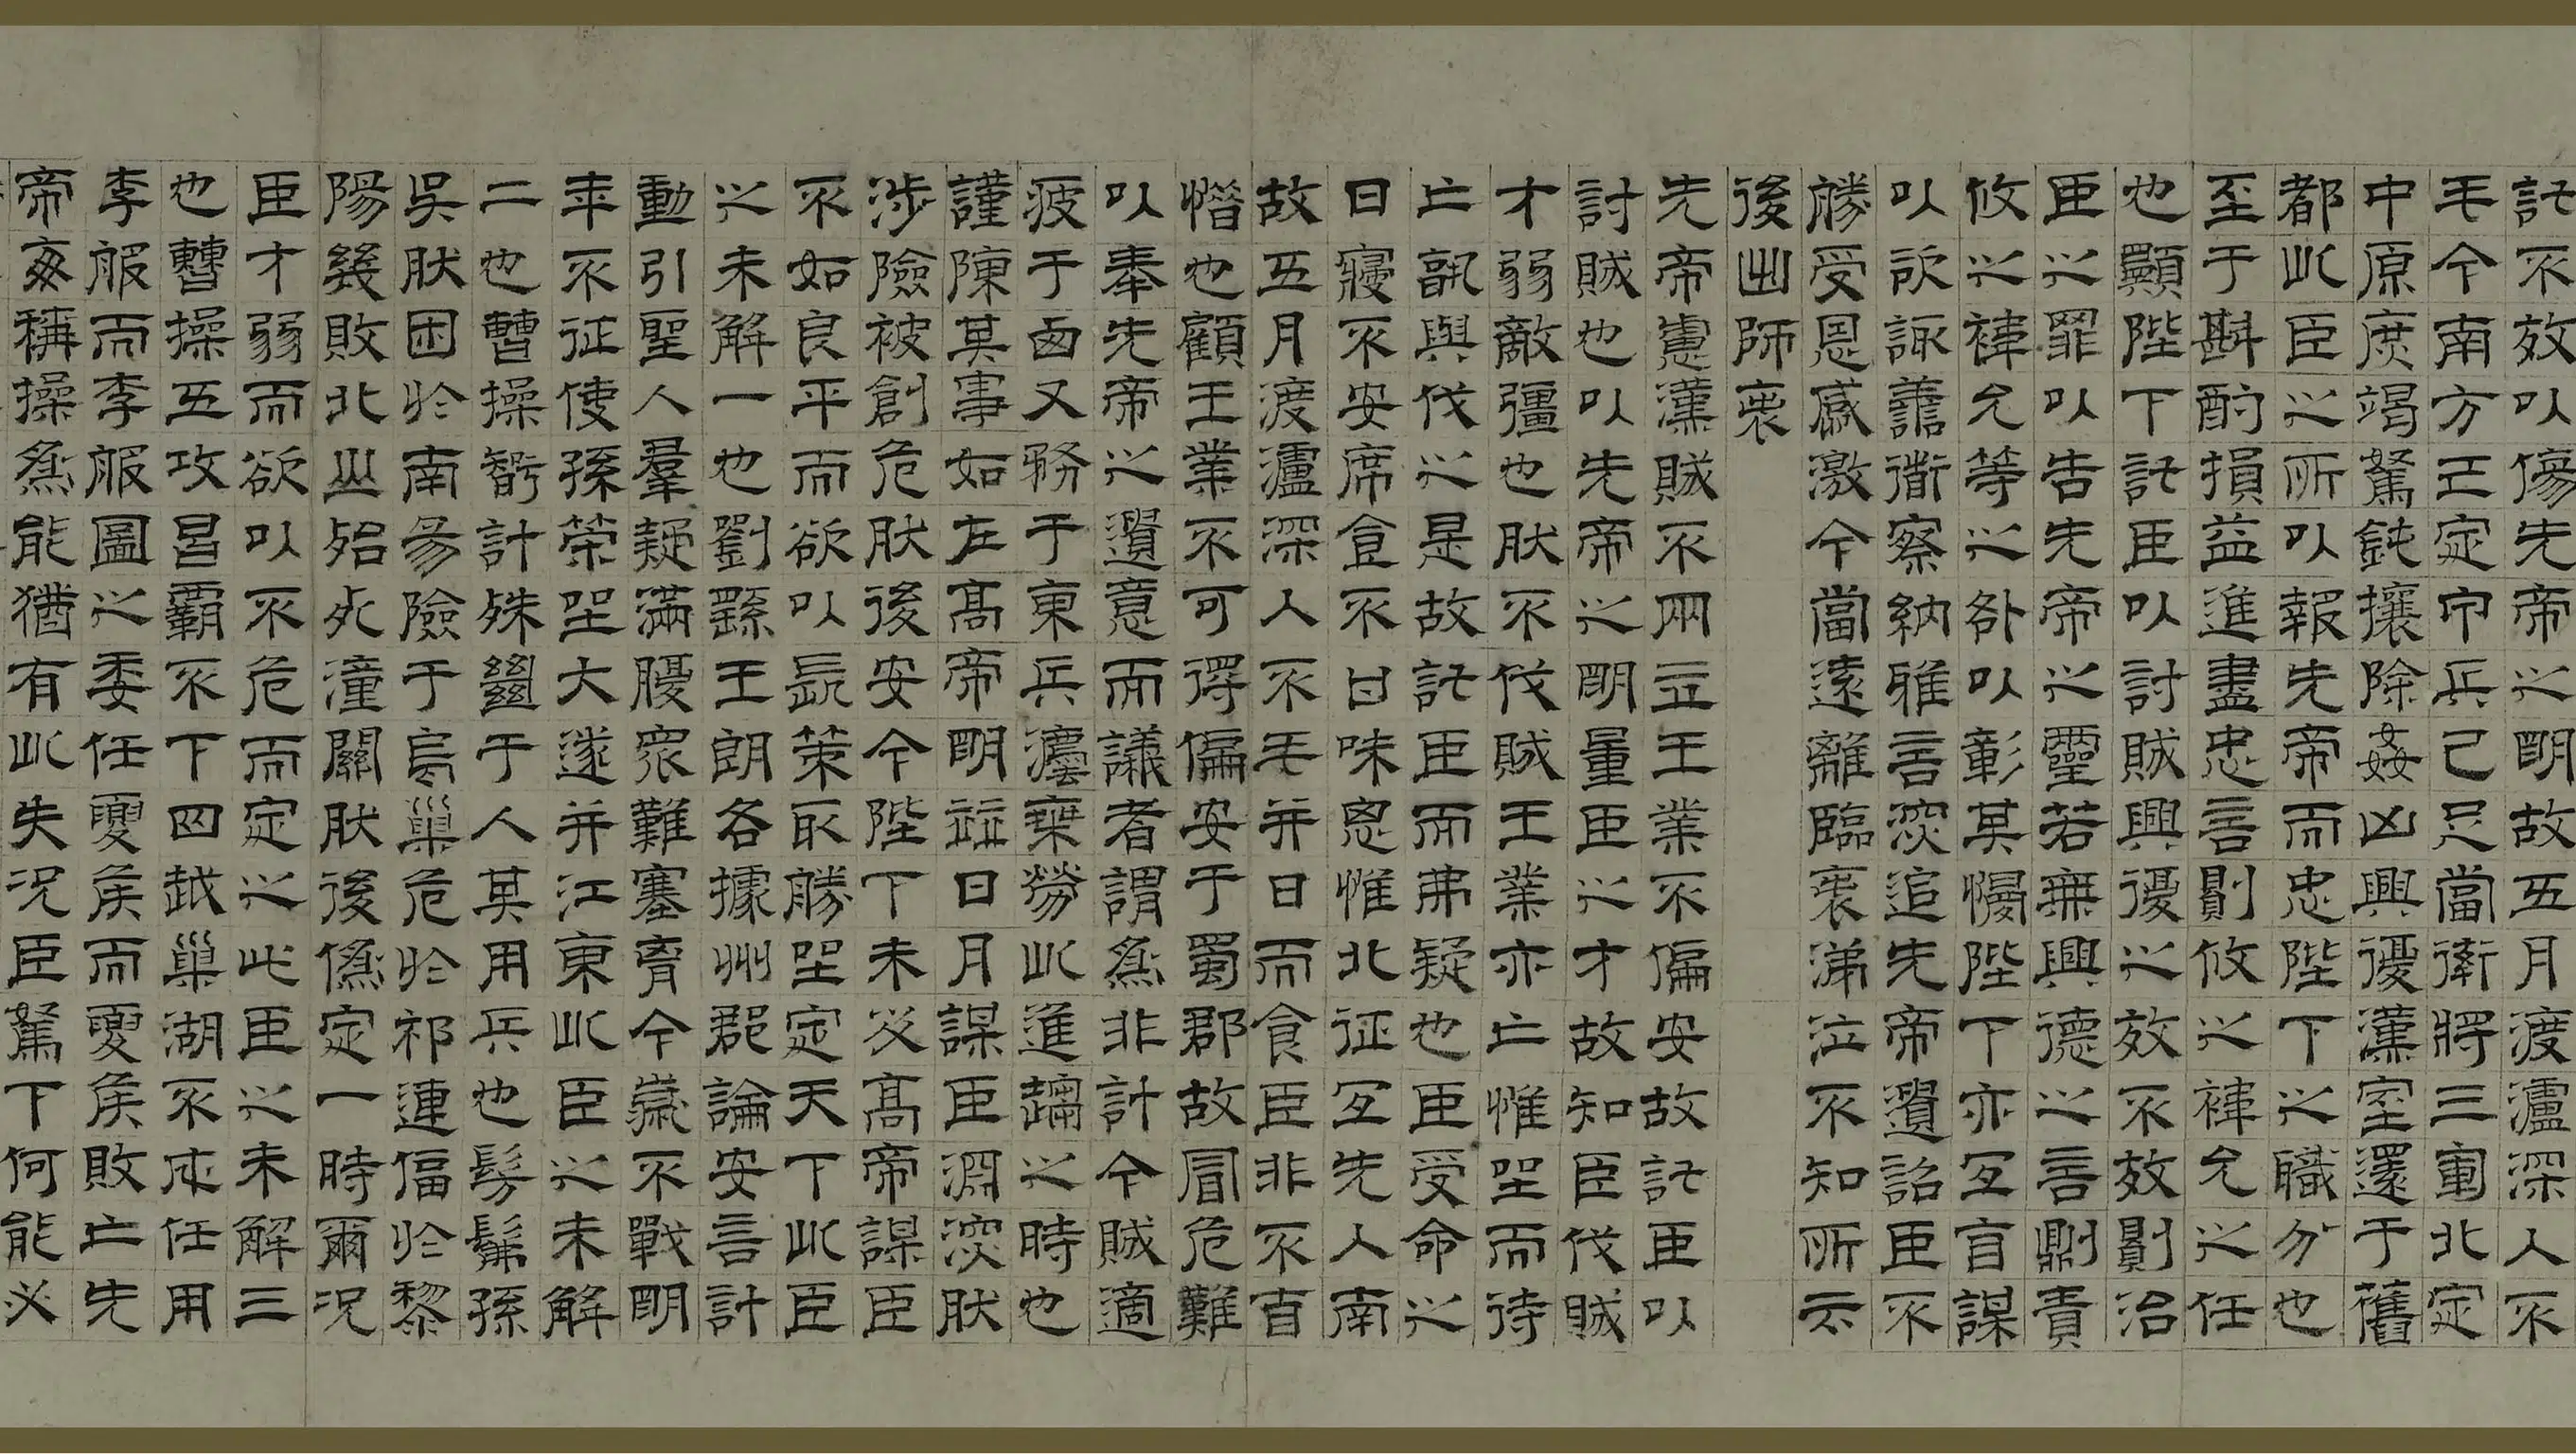 託不效以傷先帝之明故五月渡瀘深入不
毛今南方已定甲兵已足當率將三軍北定
中原庶竭駑鈍攘除姦凶興復漢室還于舊
都此臣之所以報先帝而忠陛下之職分也
至于斟酌損益進盡忠言則攸之褘允之任
也顯陛下託臣以討賊興復之效不效則治
臣之罪以告先帝之靈若無興德之言則責
攸之褘允等之咎以彰其慢陛下亦宜自謀
以諮諏善道察納雅言深追先帝遺詔臣不
勝受恩感激今當遠離臨表涕泣不知所云
後出師表
先帝慮漢賊不兩立王業不偏安故託臣以
討賊也以先帝之明量臣之才故知臣伐賊
才弱敵彊也然不伐賊王業亦亡惟坐而待
亡孰與伐之是故託臣而弗疑也臣受命之
日寢不安席食不甘味思惟北征宜先入南
故五月渡瀘深入不毛并日而食臣非不自
惜也顧王業不可得偏安于蜀郡故冒危難
以奉先帝之遺意而議者謂為非計今賊適
疲于西又務于東兵法乘勞此進趨之時也
謹陳其事如左高帝明並日月謀臣淵深然
涉險被創危然後安今陛下未及高帝謀臣
不如良平而欲以長策取勝坐定天下此臣
之未解一也劉繇王朗各據州郡論安言計
動引聖人羣疑滿腹眾難塞胷今歲不戰明
年不征使孫策坐大遂并江東此臣之未解
二也曹操智計殊絕于人其用兵也髣髴孫
吳然困於南昜險于烏巢危於祁連偪於黎
陽幾敗北山殆死潼關然後偽定一時爾況
臣才弱而欲以不危而定之此臣之未解三
也曹操五攻昌霸不下四越巢湖不成任用
李服而李服圖之委任夏侯而夏侯敗亡先
帝每稱操為能猶有此失況臣駑下何能必